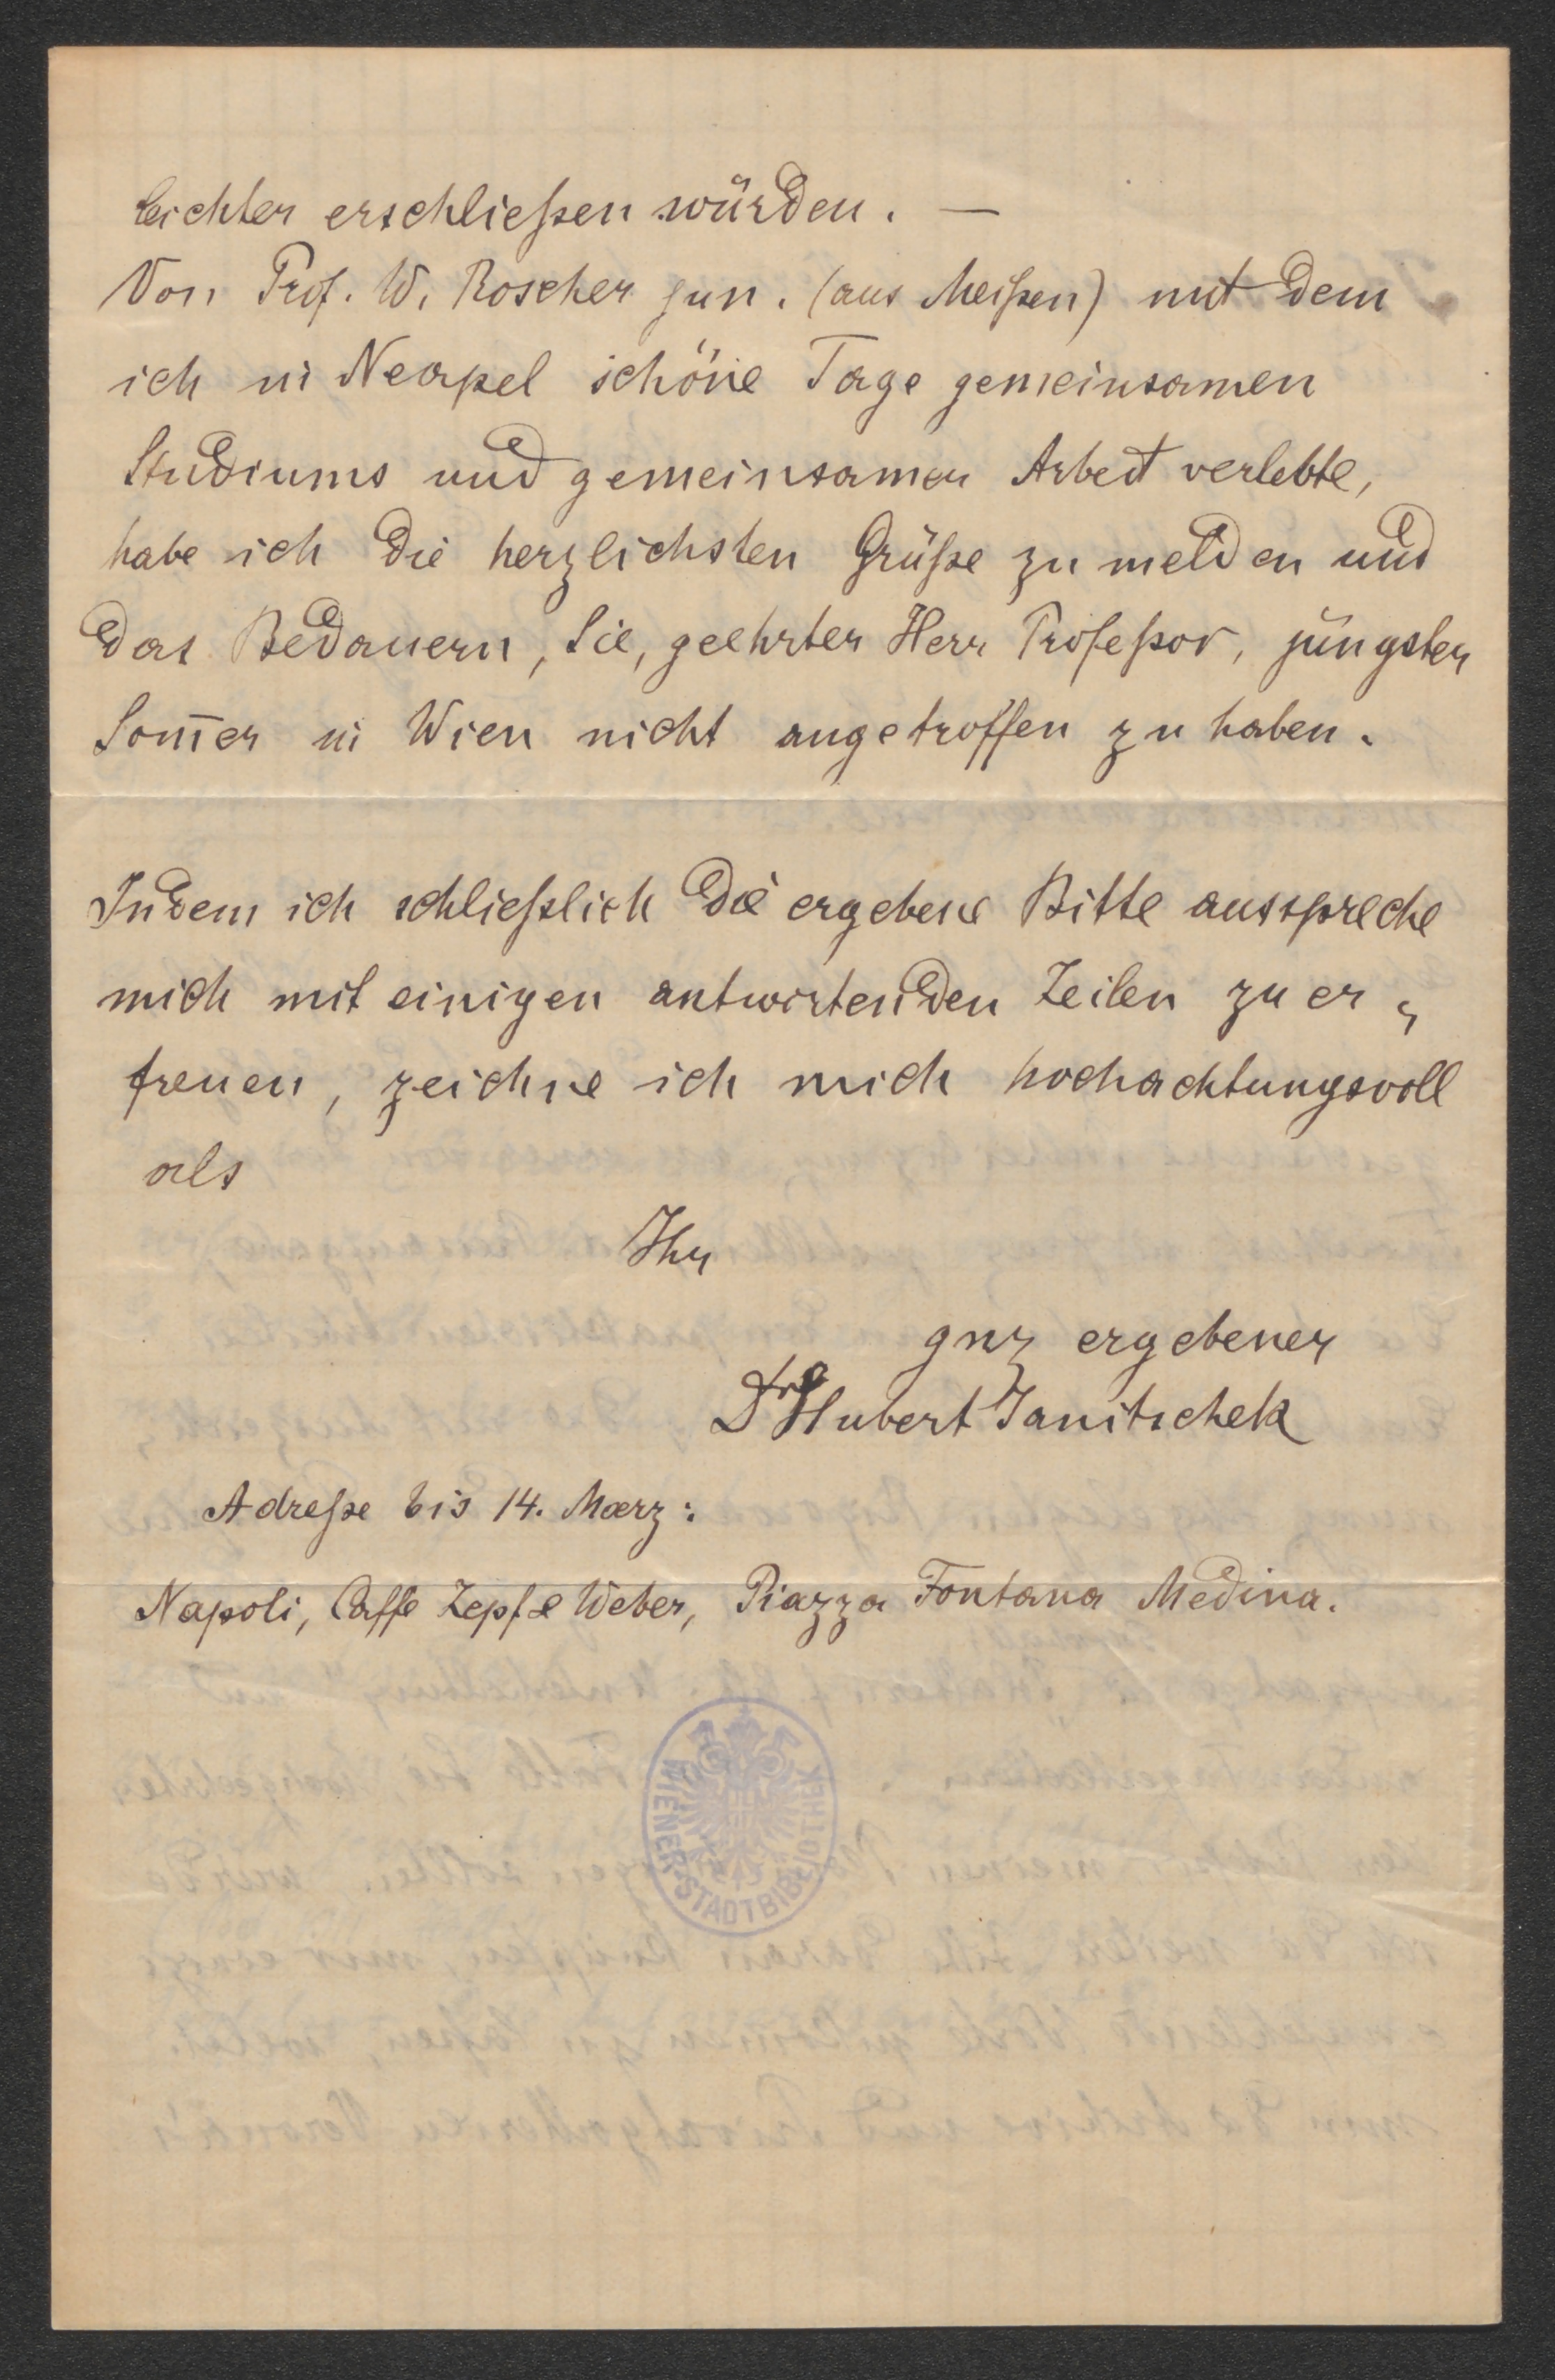 leichter erschließen würden. —
Von Prof. W. Roscher jun. (aus Meißen) mit dem
ich in Neapel schöne Tage gemeinsamen
Studiums und gemeinsamer Arbeit verlebte,
habe ich die herzlichsten Grüße zu melden und
das Bedauern, Sie, geehrter Herr Profeßor, jüngsten
Som̅er in Wien nicht angetroffen zu haben.
Indem ich schließlich die ergebene Bitte ausspreche
mich mit einigen antwortenden Zeilen zu er=
freuen, zeichne ich mich hochachtungsvoll
als
Ihr
gnz ergebener
Dr Hubert Janitschek
Adreße bis 14. Maerz:
Napoli, Caffe Zepf e Weber, Piazza Fontana Medina.
WIENER STADTBIBLIOTHEK